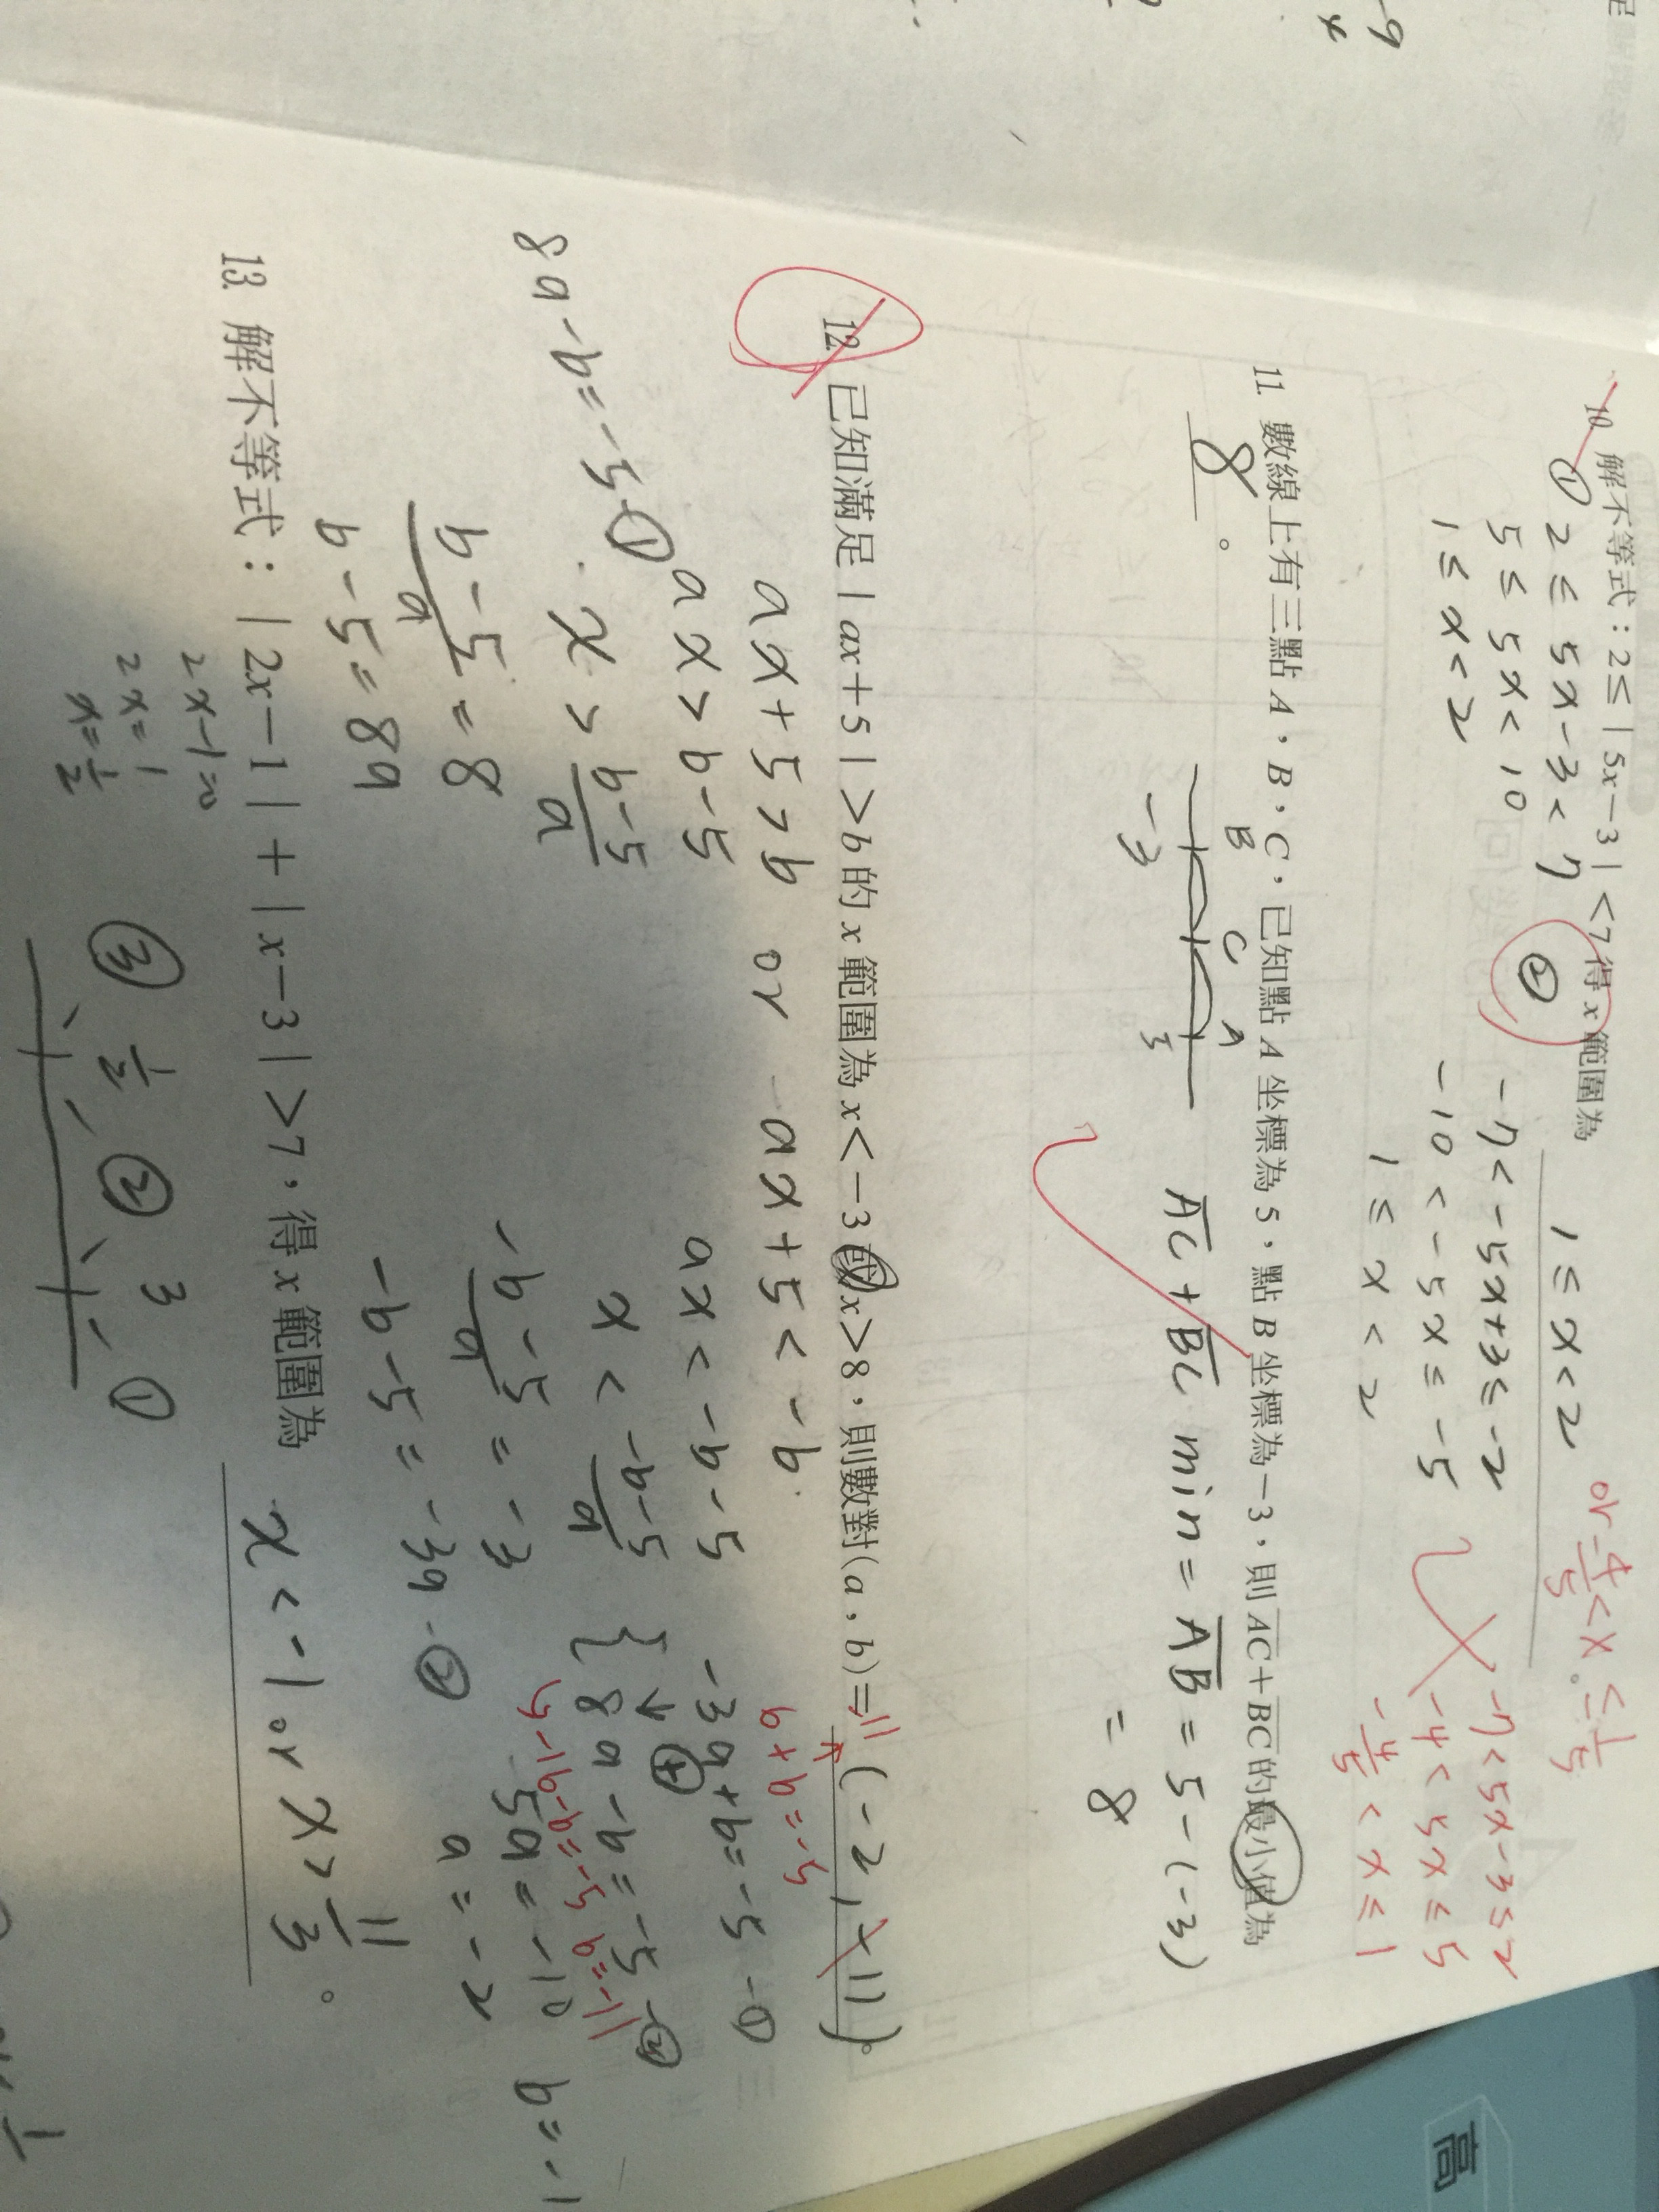 -9
4
10. 解不等式：2≤|5x−3|<7得x範圍為 1≤x<2 。
or -4/5<x≤1/5
① 2≤5x-3<7
5≤5x<10
1≤x<2
② -7<-5x+3≤-2
-10<-5x≤-5
1≤x<2
-7<5x-3≤2
-4<5x≤5
-4/5<x≤1
11. 數線上有三點A，B，C，已知點A坐標為5，點B坐標為−3，則AC+BC的最小值為
8 。
B C A
-3 5
AC+BC min=AB=5-(-3)
=8
12. 已知滿足|ax+5|>b的x範圍為x<−3或x>8，則數對(a，b)= (-2, 11) 。
ax+5>b or ax+5<-b
ax>b-5
x>b-5/a
b-5/a=8
b-5=8a
8a-b=-5 ①
ax<-b-5
x<-b-5/a
-b-5/a=-3
-b-5=-3a ②
6+b=-5
-3a+b=-5 -①
8a-b=-5 -②
5a=-10
a=-2
-16-b=-5
b=-11
b=-1
13. 解不等式：|2x−1|+|x−3|>7，得x範圍為 x<-1 or x>11/3 。
2x-1=0
2x=1
x=1/2
③ 1/2 ② 3 ①
高